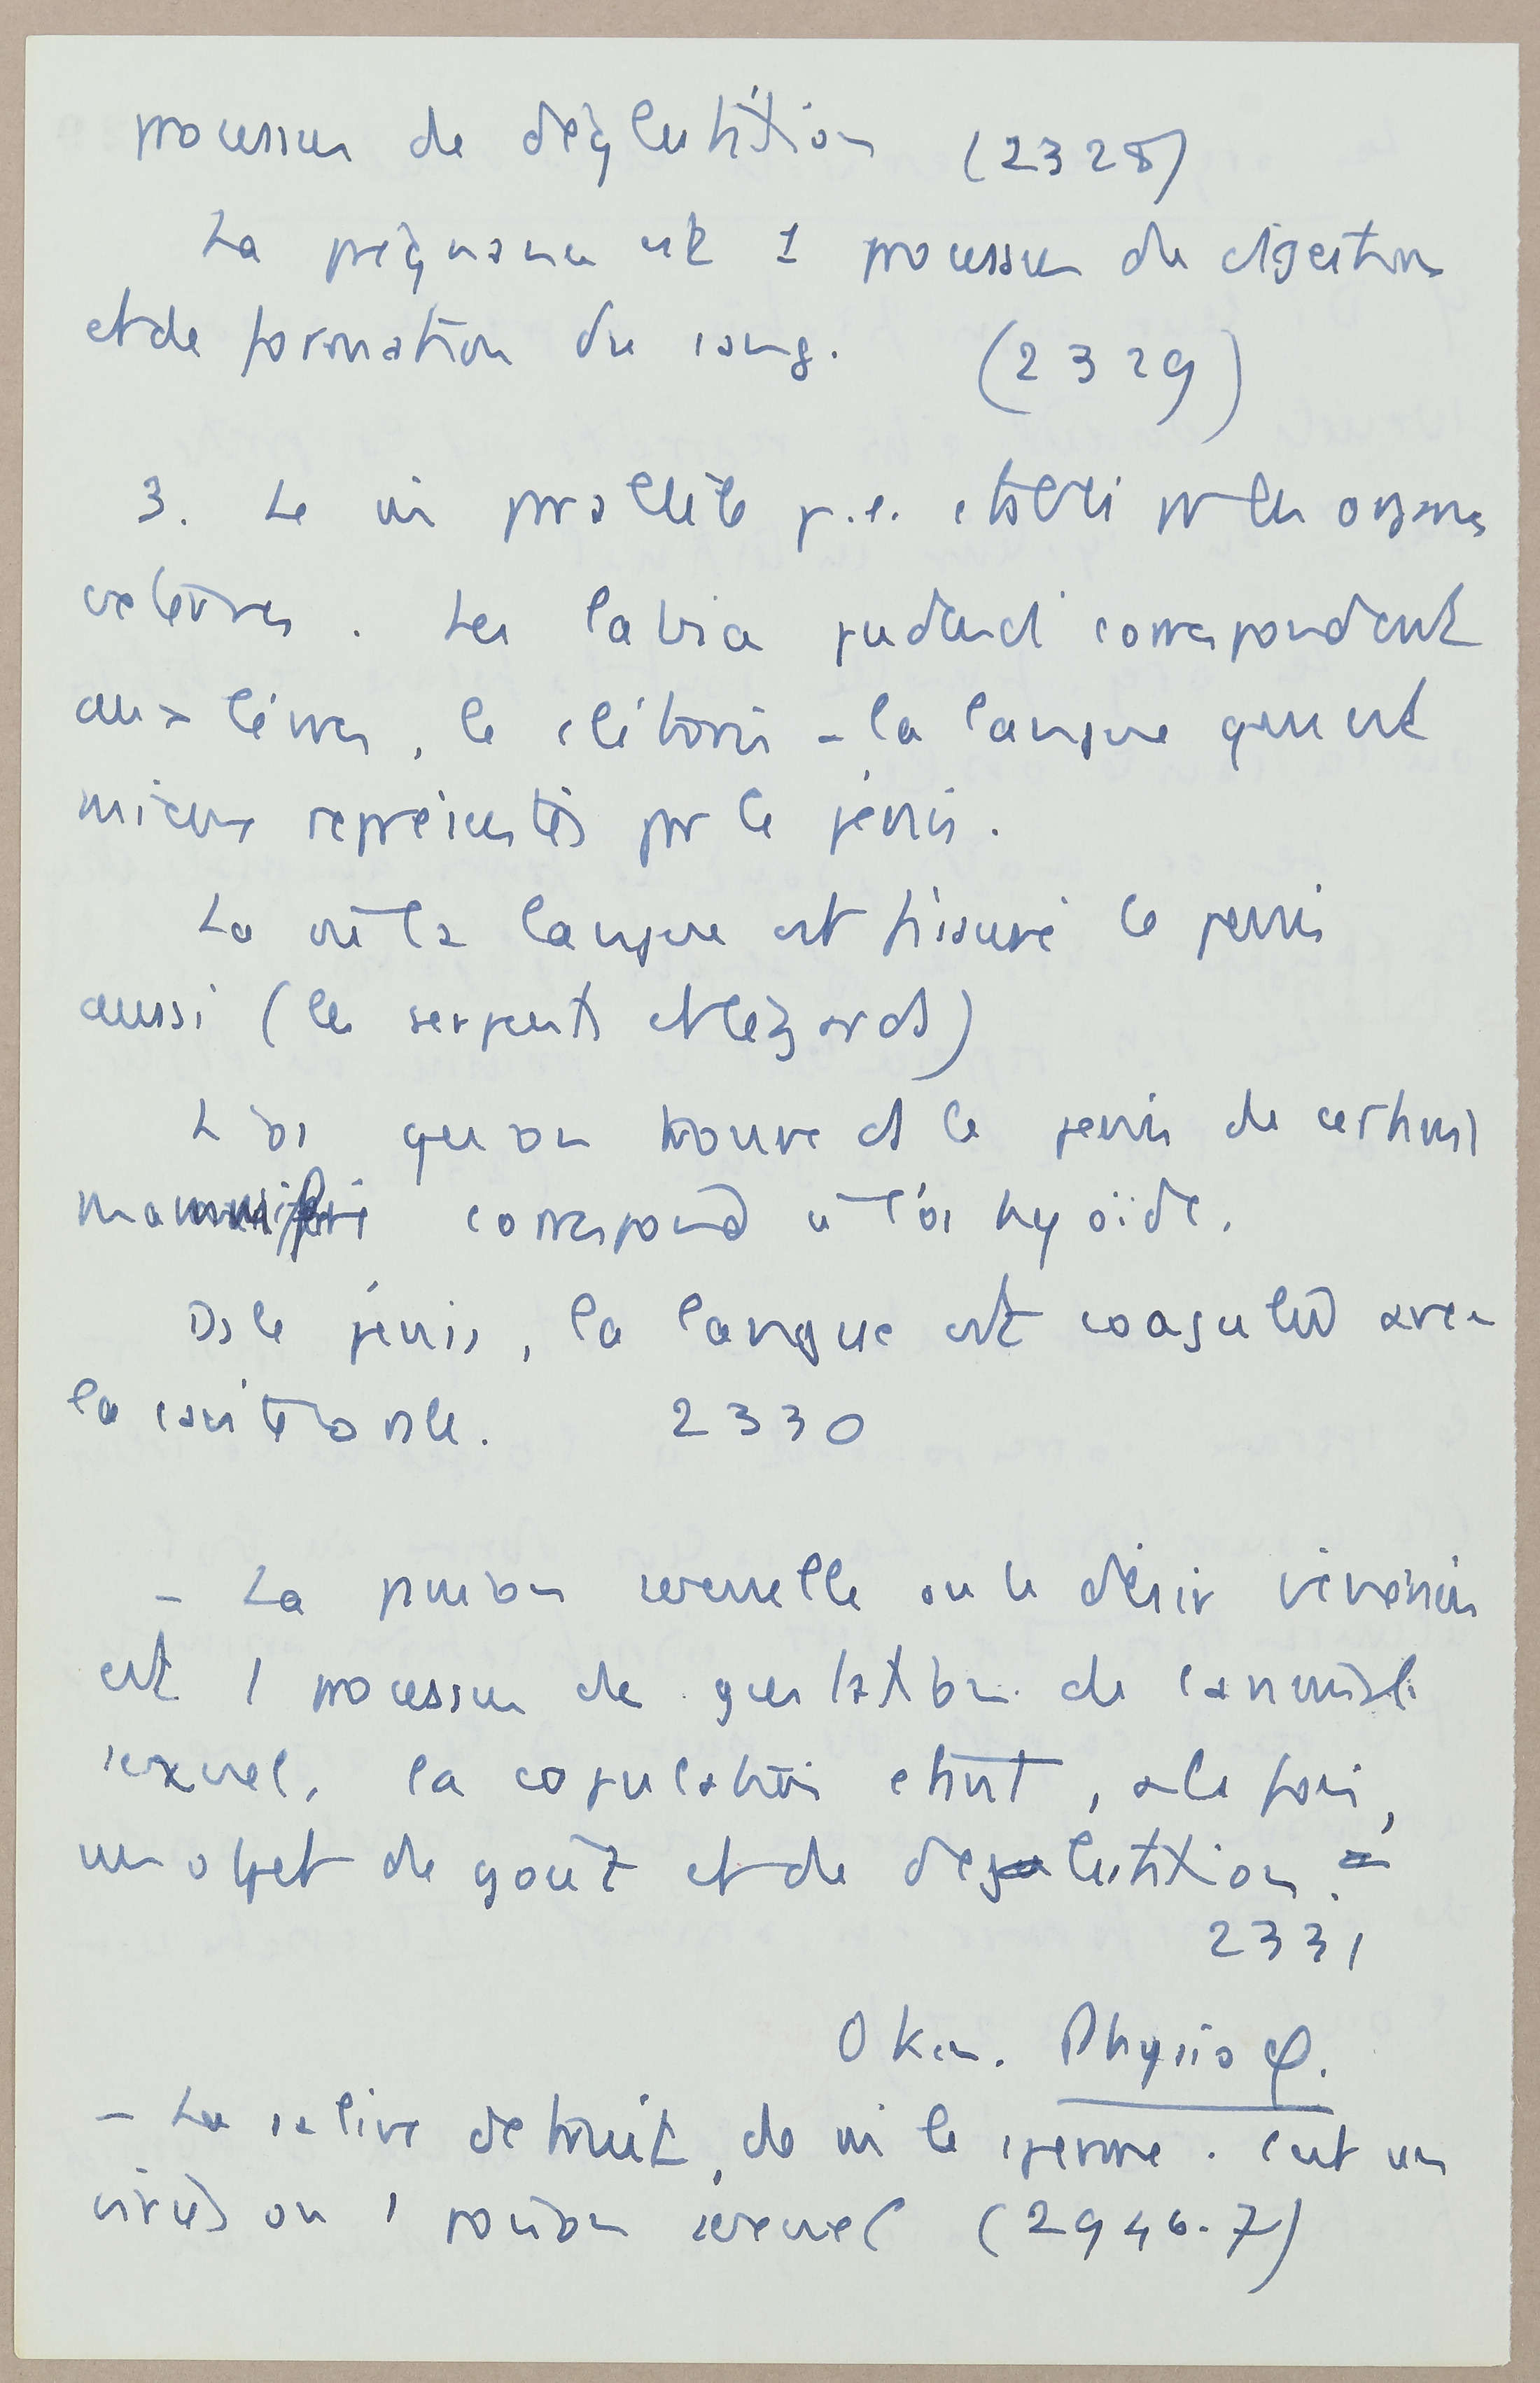 processus de déglutition (2328)
La pregnance est 1 processus de digestion
et de formation du sang. (2329)
3. Le m parallèle p.e. établi pr les organes
externes. Les labia pudendi correspondent
aux lèvres, le clitoris - la langue qui est
mieux représentée par le pénis.
Là où la langue est fissurée le penis
aussi (les serpents et lézards)
L'os qu'on trouve ds le penis de certains
mammifères correspond à l'os hyoïde.
Ds le pénis, la langue est coagulée avec
la cavité orale. 2330
- La pulsion sexuelle ou le désir vénérien
est 1 processus de gustation de l'animal
sexuel, la copulation étant, à la fois,
un objet de goût et de déglutition.
2331
Oken. Physio φ.
- La salive détruit, de m le sperme. C'est un
virus ou 1 poison sexuel (2946-7)